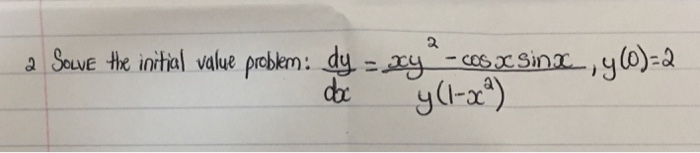 2 SOLVE the initial value problem: dy/dx = (xy² - cosx sinx) / (y(1-x²)), y(0)=2